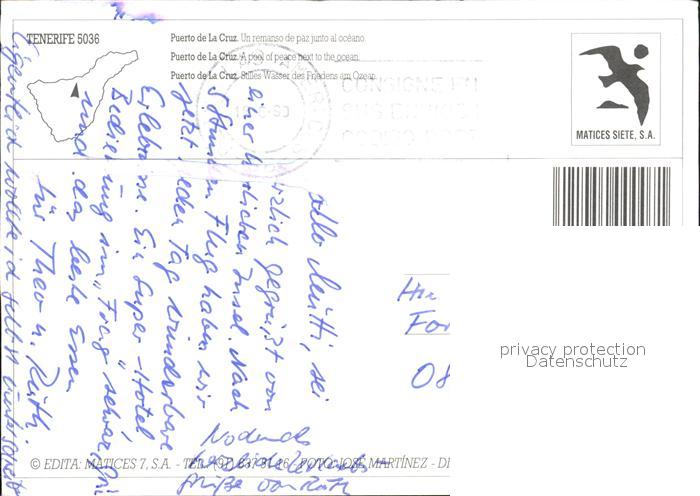 TENERIFE 5036
Puerto de La Cruz. Un remanso de paz junto al océano.
Puerto de La Cruz. A pool of peace next to the ocean.
Puerto de La Cruz. Stilles Wasser des Friedens am Ozean.
CONSIGNE EN
MATICES SIETE, S.A.
Hallo Mutti, sei
herzlich gegrüßt von
einer herrlichen Insel. Nach
5 Stunden Flug haben wir
jetzt jeden Tag wunderbare
Erlebnisse. Ein Super-Hotel
Bedienung im
und das beste Essen
für Theo u. Ruth.
Eigentlich wollte ich selbst
For
08
privacy protection
Datenschutz
herzliche
Grüße von Ruth
© EDITA: MATICES 7, S.A. - FOTO: JOSE MARTÍNEZ -